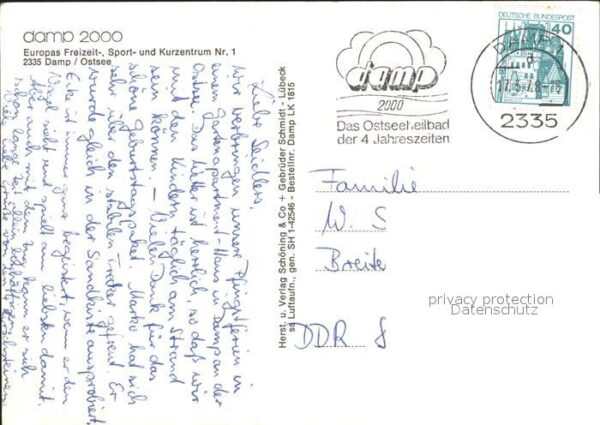 damp 2000
Europas Freizeit-, Sport- und Kurzentrum Nr. 1
2335 Damp / Ostsee
Liebe Seidlers,
wir verbringen unsere Pfingstferien in
einem Gartenapartment-Haus in Damp an der
Ostsee. Das Wetter ist herrlich, so daß wir
mit den Kindern täglich am Strand
sein können. – Vielen Dank für das
schöne Geburtstagspaket. Marko hat sich
sehr über den stabilen gefreut. Er
wurde gleich in der Sandkiste ausprobiert.
Eike ist immer ganz begeistert, wenn er den
sieht und spielt am liebsten damit.
Aber auch mit dem kann er sich
schon lange
Viele liebe Grüße von
Herst. u. Verlag Schöning & Co + Gebrüder Schmidt - Lübeck
ss Luftaufn., gen. SH 1-42546 - Bestellnr. Damp LK 1815
damp
2000
Das Ostseeheilbad
der 4 Jahreszeiten
DEUTSCHE BUNDESPOST
40
DAMP 1
2335
Familie
W. S
Breite
DDR 8
privacy protection
Datenschutz